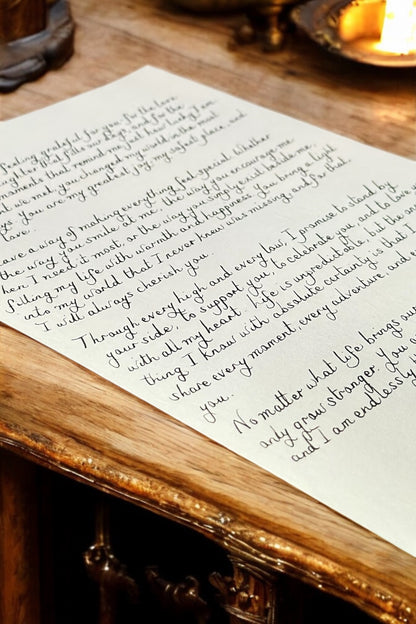 feeling grateful for you, for the love
laughter that fills our days, and for the
moments that remind me just how lucky I am
we met, you changed my world in the most
you are my greatest joy, my safest place, and
love.
have a way of making everything feel special. Whether
the way you smile at me, the way you encourage me
when I need it most, or the way you simply exist beside me,
filling my life with warmth and happiness. You bring a light
into my world that I never knew was missing, and for that,
I will always cherish you.
Through every high and every low, I promise to stand by
your side, to support you, to celebrate you, and to love
with all my heart. Life is unpredictable, but the
thing I know with absolute certainty is that I
share every moment, every adventure, and
you.
No matter what life brings our
only grow stronger. You
and I am endlessly